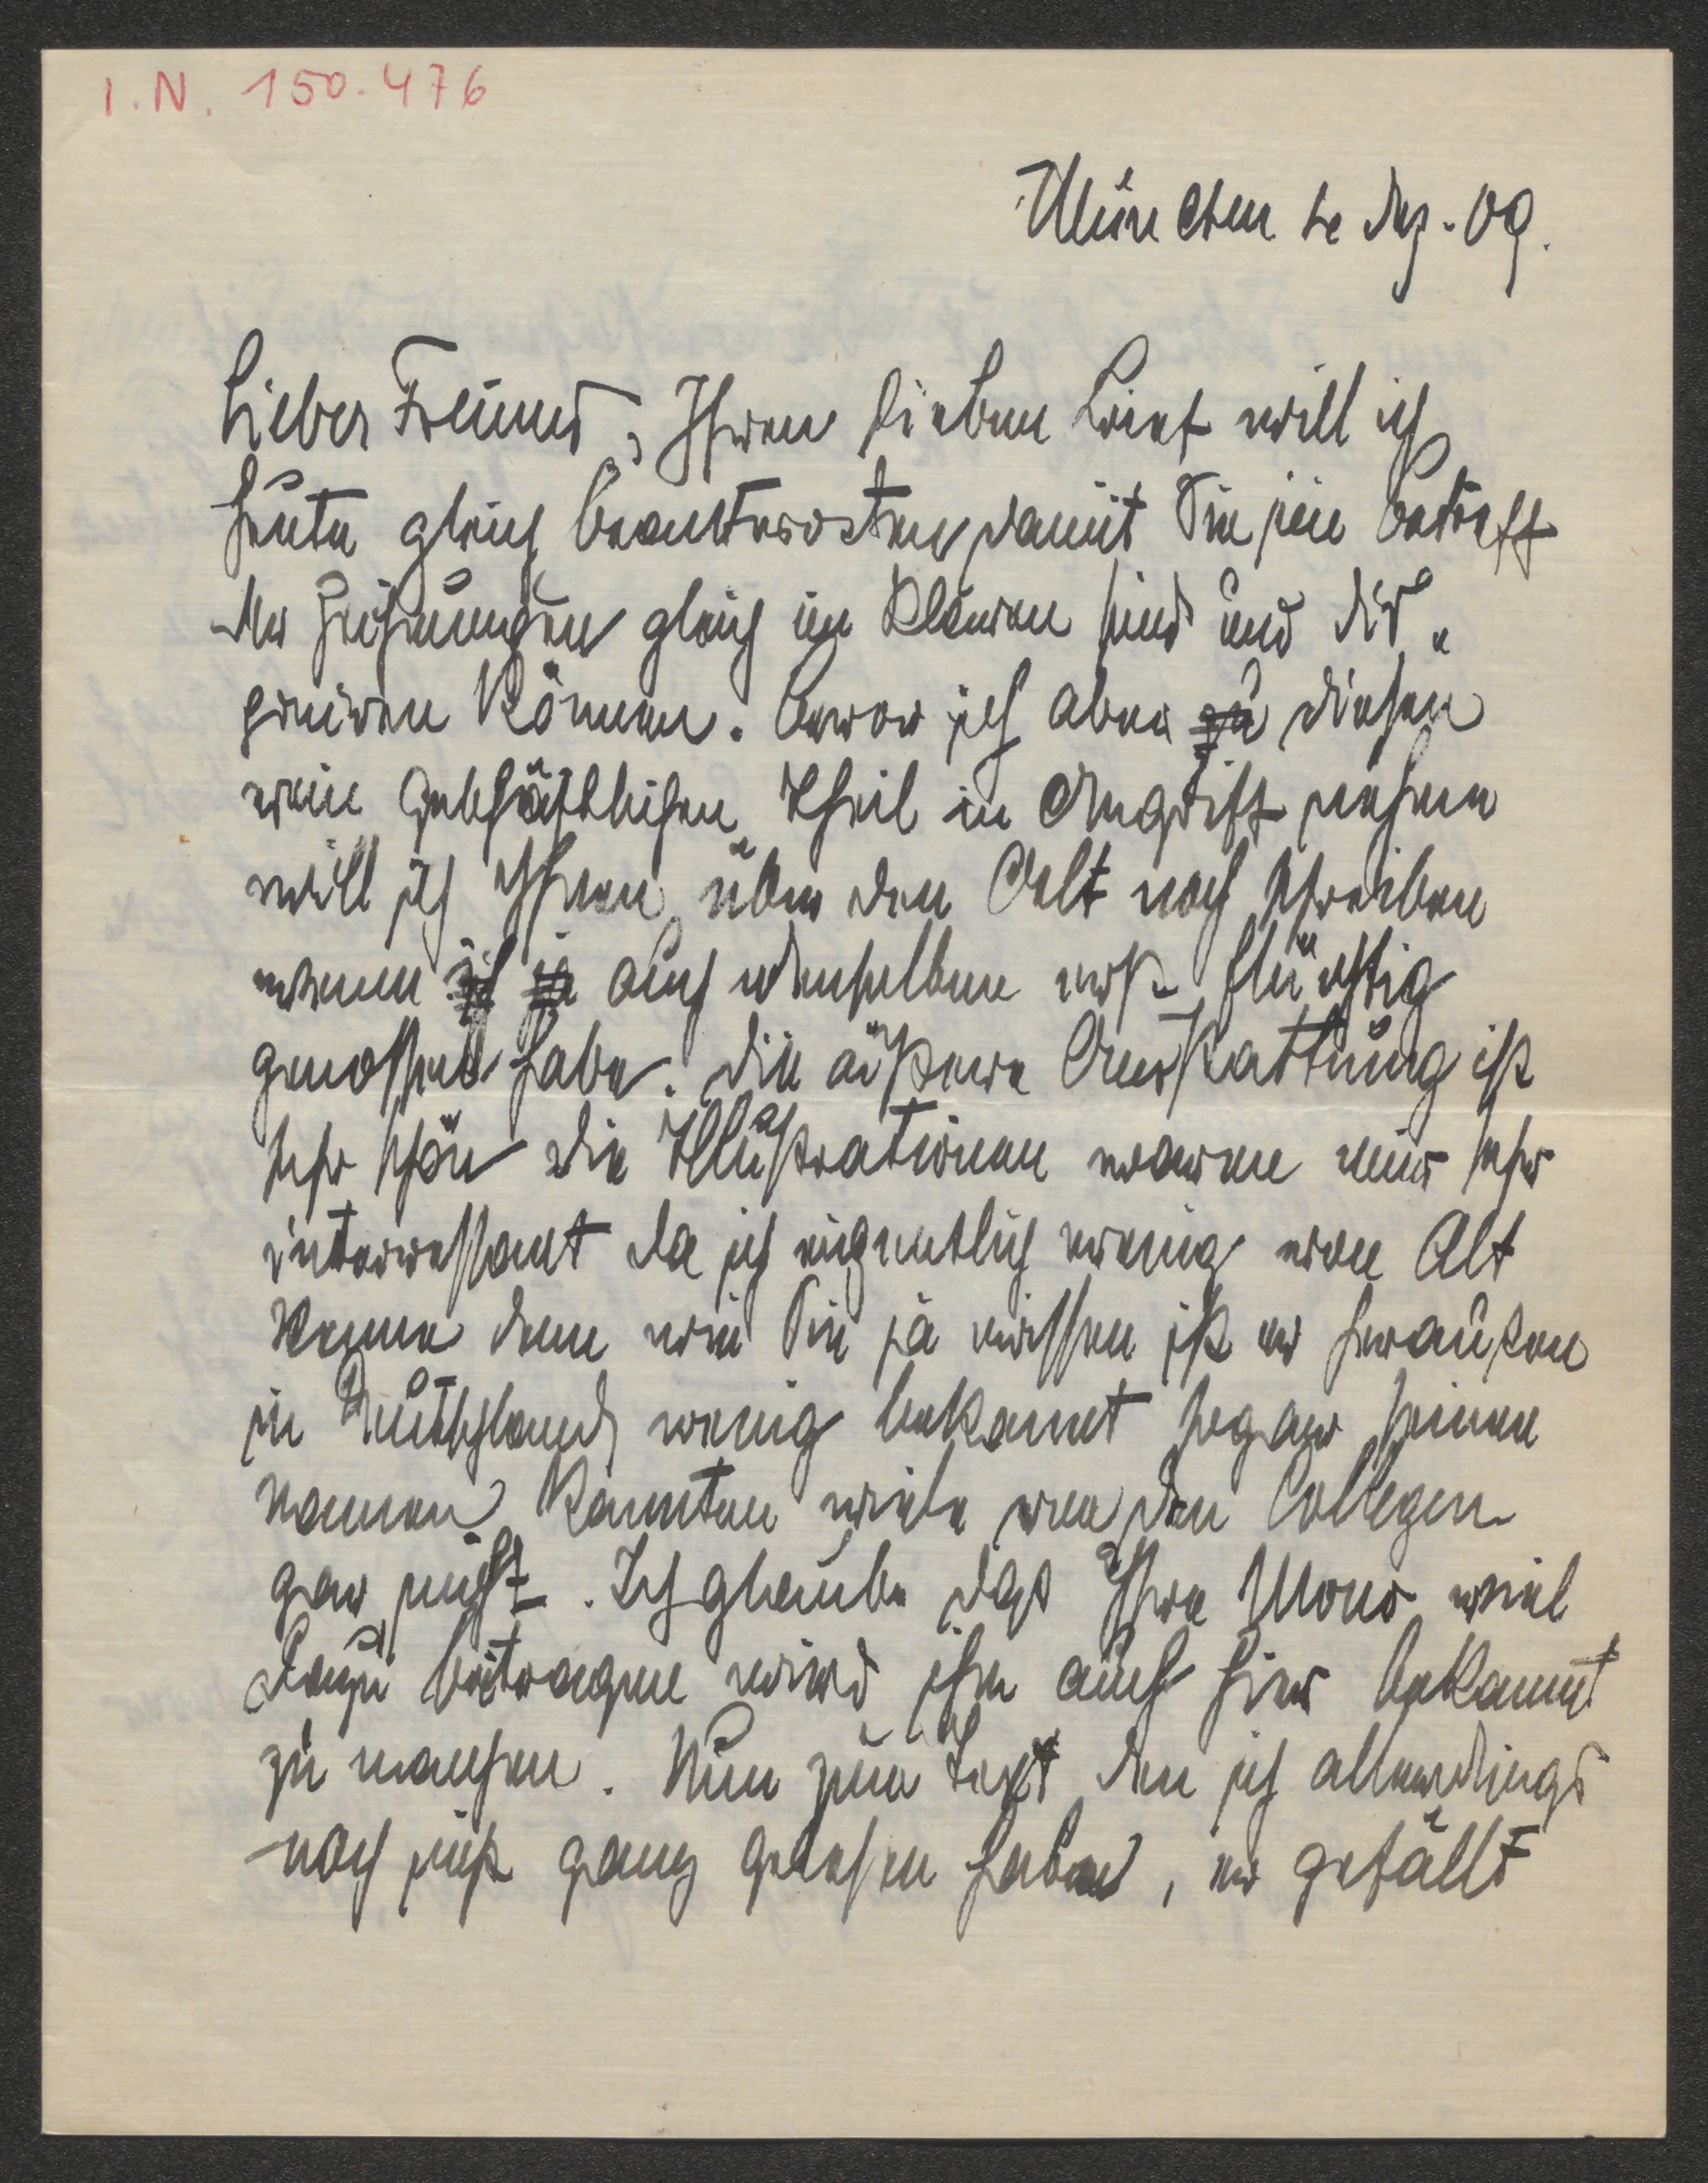 I.N. 150.476
München 4 Dez. 09.
Lieber Freund, Ihren lieben Brief will ich
heute gleich beantworten damit Sie in Betreff
der Zeichnungen gleich im Klaren sind und dis-
poniren können. Bevor ich aber diesen
rein geschäftlichen Theil in Angriff nehme
will ich Ihnen über den Alt noch schreiben
wenn auch denselben erst flüchtig
genossen habe. Die äußere Ausstattung ist
sehr schön die Illustrationen waren mir sehr
interressant da ich eigentlich wenig von Alt
kenne denn wie Sie ja wissen ist er heraußen
in Deutschland wenig bekannt sogar seinen
Namen kannten viele von den Collegen
gar nicht. Ich glaube das Ihre Mono viel
dazu beitragen wird ihn auch hier bekannt
zu machen. Nun zum Text den ich allerdings
noch nicht ganz gelesen habe, er gefällt